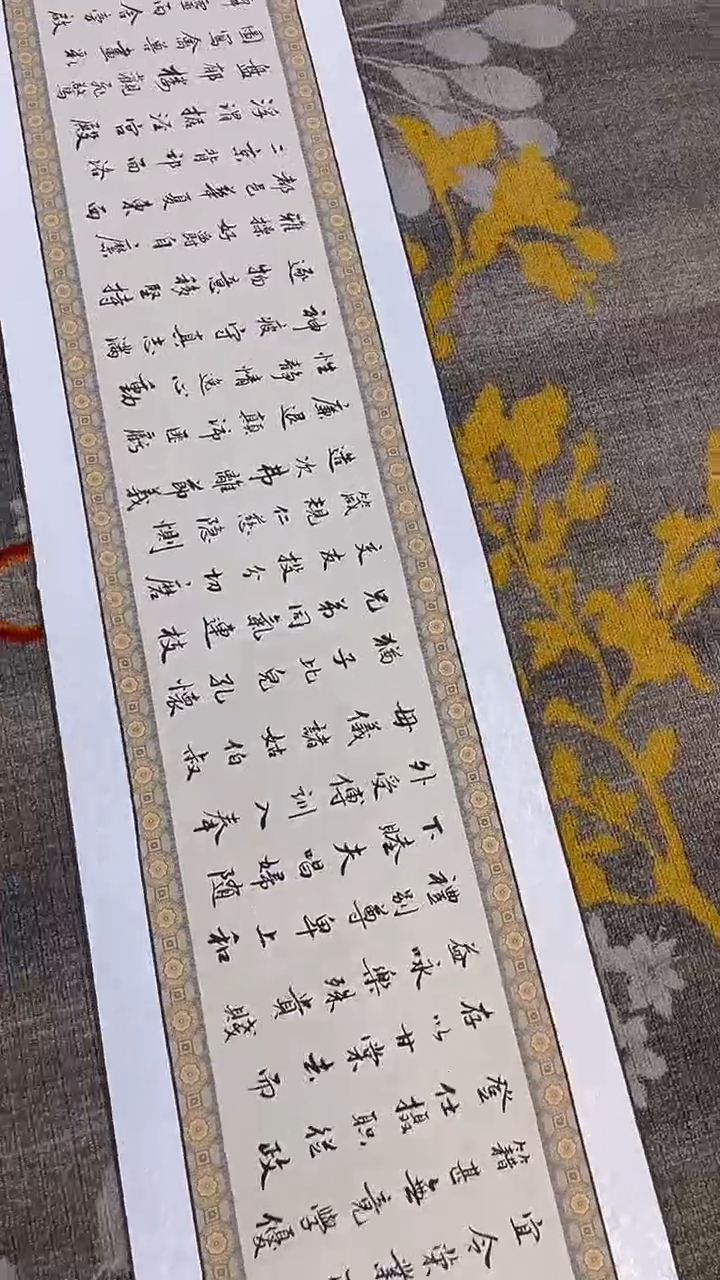 宜令榮業
籍甚無竟學優
登仕摄职從政
存以甘棠去而
益咏樂殊貴賤
禮别尊卑上和
下睦夫唱婦随
外受傅訓入奉
母儀諸姑伯叔
猶子比兒孔懷
兄弟同氣連枝
交友投分切磨
箴規仁慈隐惻
造次弗離節義
廉退顛沛匪虧
性静情逸心動
神疲守真志滿
逐物意移堅持
雅操好爵自縻
都邑華夏東西
二京背邙面洛
浮渭據涇宫殿
盤郁樓觀飛驚
圖寫禽獸畫彩
靈丙舍傍啟